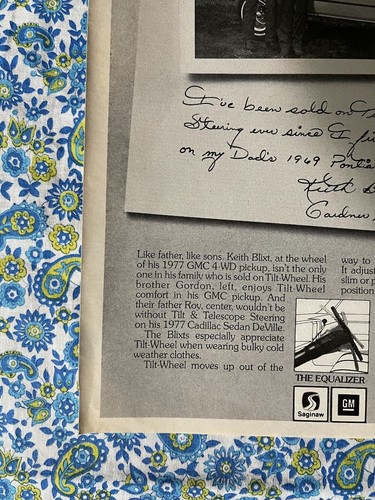 I've been sold on
Steering ever since I
on my Dad's 1969
Keith
Gardner
Like father, like sons. Keith Blixt, at the wheel
of his 1977 GMC 4-WD pickup, isn't the only
one in his family who is sold on Tilt-Wheel. His
brother Gordon, left, enjoys Tilt-Wheel
comfort in his GMC pickup. And
their father Roy, center, wouldn't be
without Tilt & Telescope Steering
on his 1977 Cadillac Sedan DeVille.
The Blixts especially appreciate
Tilt-Wheel when wearing bulky cold
weather clothes.
Tilt-Wheel moves up out of the
way to
It adjus
slim or p
position
THE EQUALIZER
Saginaw
GM